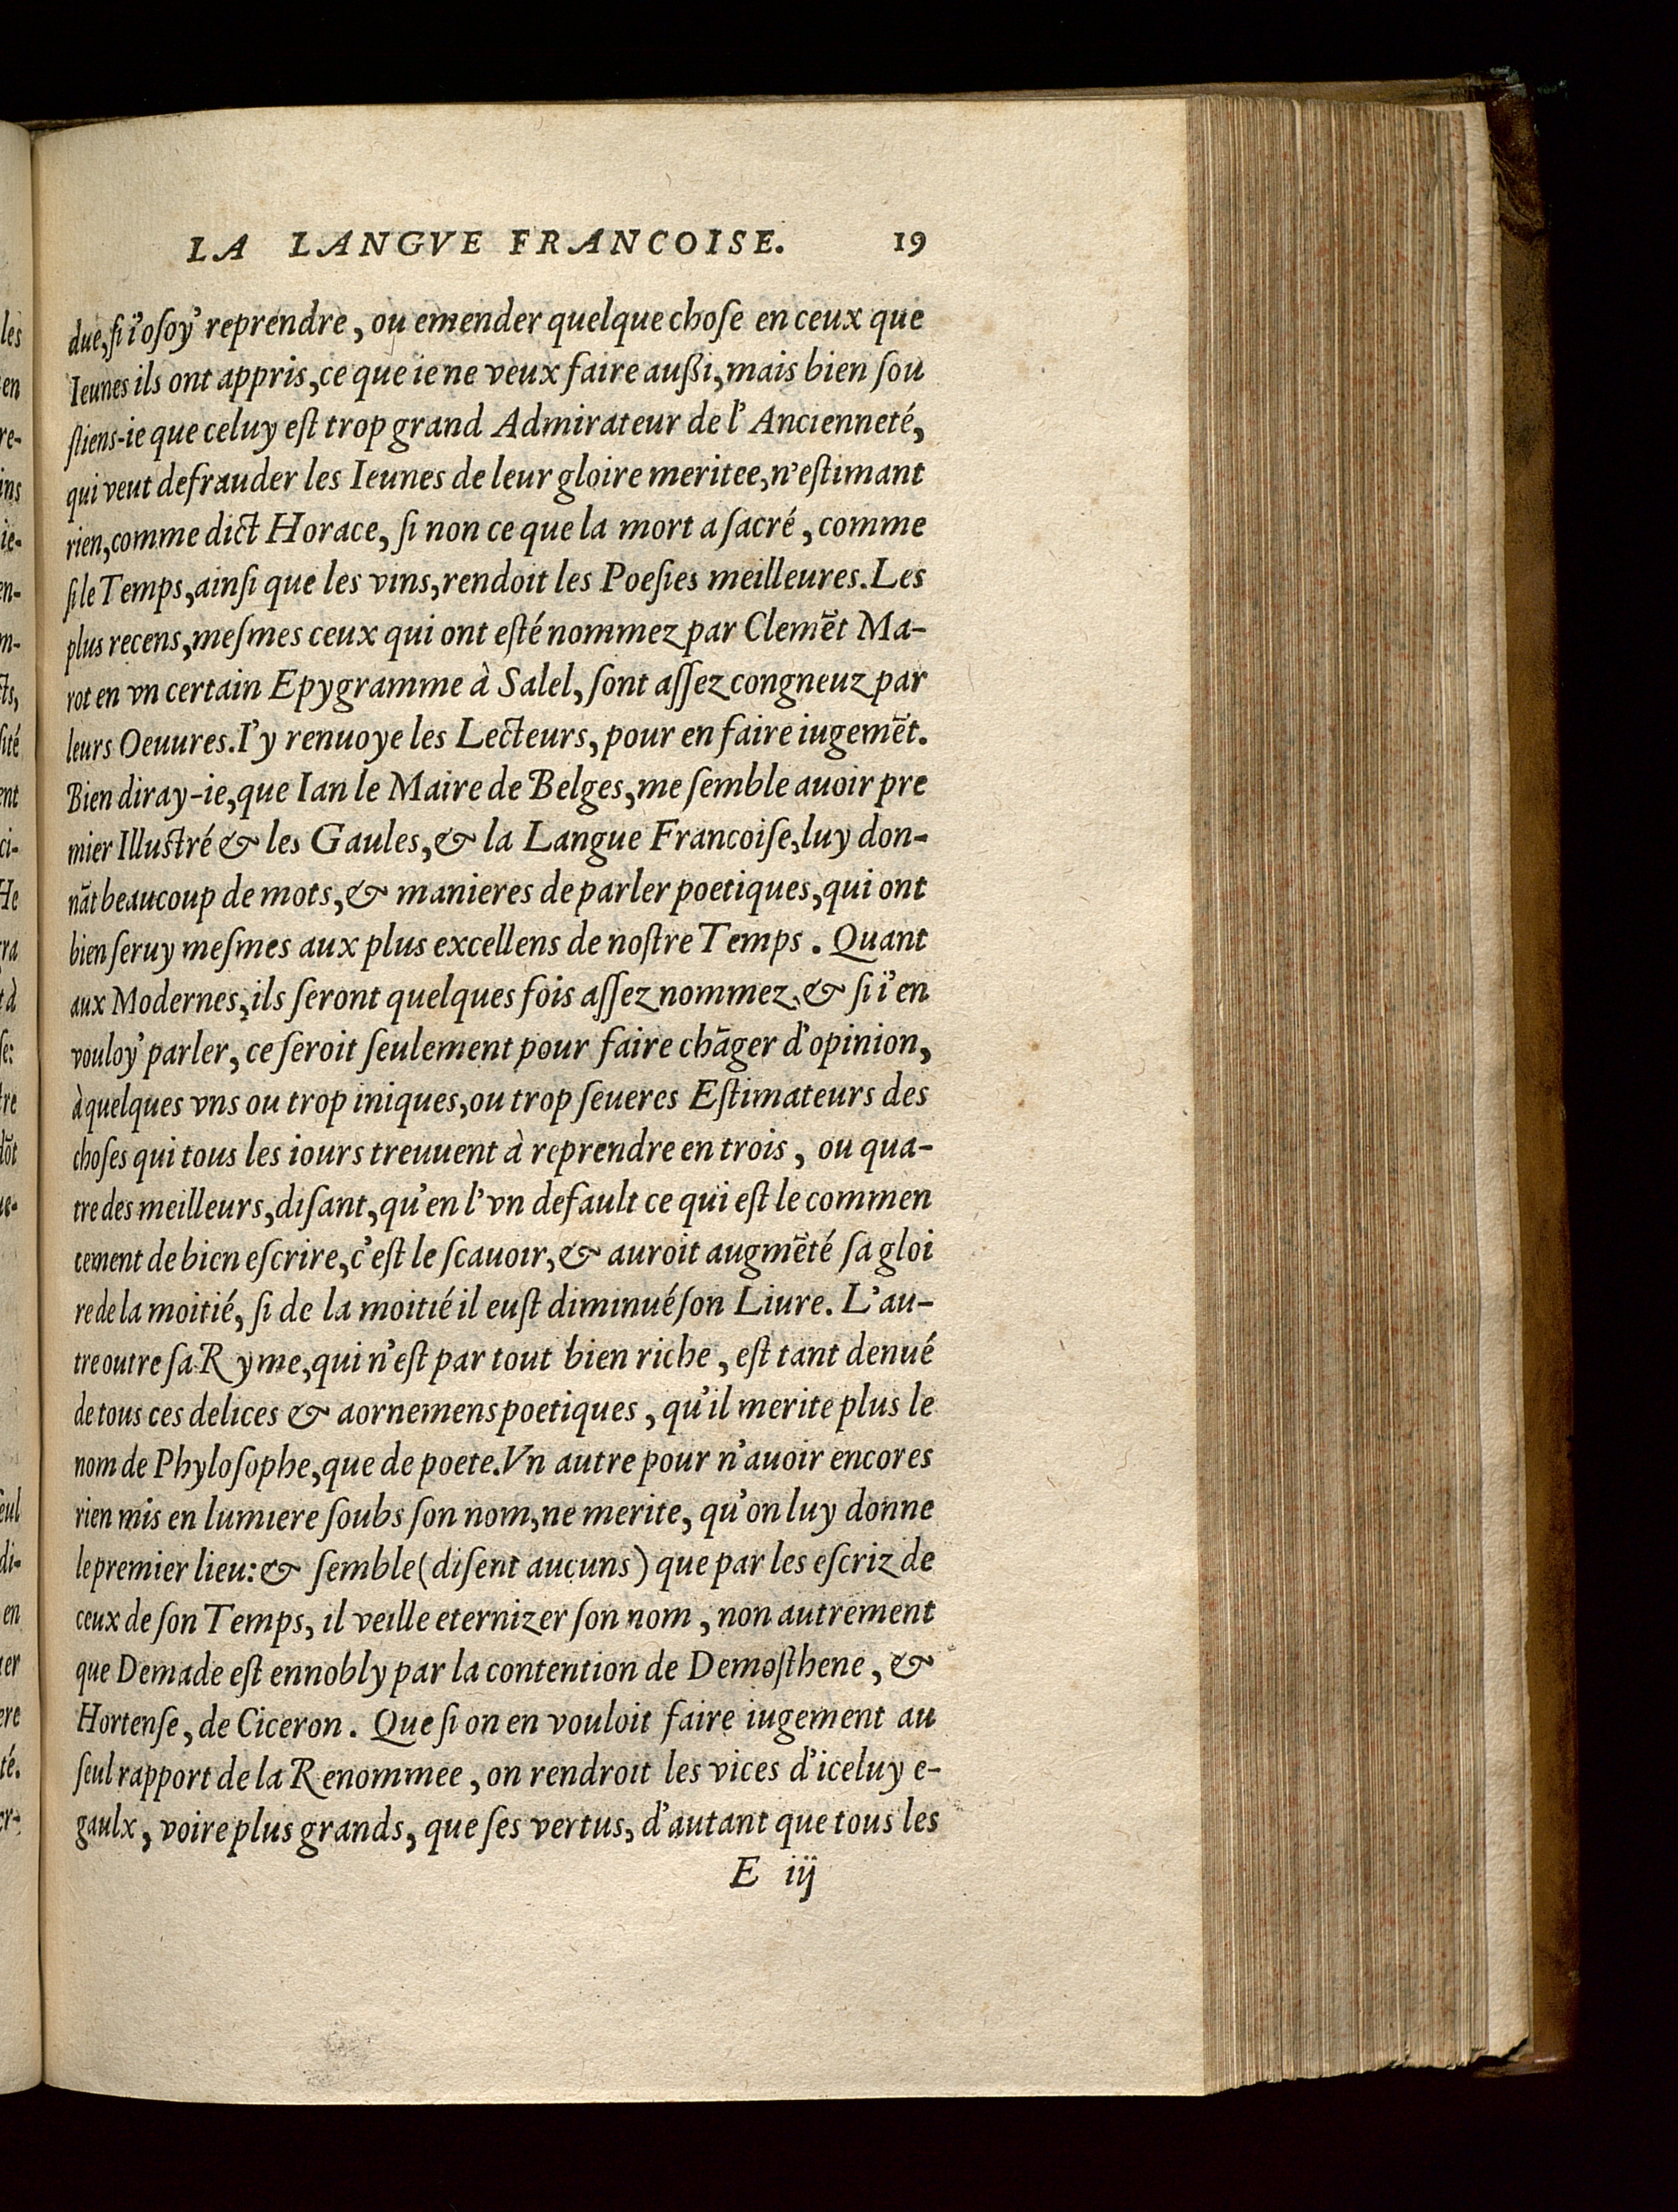 LA LANGVE FRANCOISE. 19
due, ſi i'oſoy' reprendre, ou emender quelque choſe en ceux que
Ieunes ils ont appris, ce que ie ne veux faire außi, mais bien ſou
ſtiens-ie que celuy eſt trop grand Admirateur de l'Ancienneté,
qui veut defrauder les Ieunes de leur gloire meritee, n'eſtimant
rien, comme dict Horace, ſi non ce que la mort a ſacré, comme
ſi le Temps, ainſi que les vins, rendoit les Poeſies meilleures. Les
plus recens, meſmes ceux qui ont eſté nommez par Clemēt Ma-
rot en vn certain Epygramme à Salel, ſont aſſez congneuz par
leurs Oeuures. I'y renuoye les Lecteurs, pour en faire iugemēt.
Bien diray-ie, que Ian le Maire de Belges, me ſemble auoir pre
mier Illustré & les Gaules, & la Langue Francoiſe, luy don-
nāt beaucoup de mots, & manieres de parler poetiques, qui ont
bien ſeruy meſmes aux plus excellens de noſtre Temps. Quant
aux Modernes, ils ſeront quelques fois aſſez nommez, & ſi i'en
vouloy' parler, ce ſeroit ſeulement pour faire chāger d'opinion,
à quelques vns ou trop iniques, ou trop ſeueres Eſtimateurs des
choſes qui tous les iours treuuent à reprendre en trois, ou qua-
tre des meilleurs, diſant, qu'en l'vn default ce qui eſt le commen
cement de bien eſcrire, c'eſt le ſcauoir, & auroit augmēté ſa gloi
re de la moitié, ſi de la moitié il euſt diminué ſon Liure. L'au-
tre outre ſa Ryme, qui n'eſt par tout bien riche, eſt tant denué
de tous ces delices & aornemens poetiques, qu'il merite plus le
nom de Phyloſophe, que de poete. Vn autre pour n'auoir encores
rien mis en lumiere ſoubs ſon nom, ne merite, qu'on luy donne
le premier lieu: & ſemble (diſent aucuns) que par les eſcriz de
ceux de ſon Temps, il veille eternizer ſon nom, non autrement
que Demade eſt ennobly par la contention de Demoſthene, &
Hortenſe, de Ciceron. Que ſi on en vouloit faire iugement au
ſeul rapport de la Renommee, on rendroit les vices d'iceluy e-
gaulx, voire plus grands, que ſes vertus, d'autant que tous les
E iij